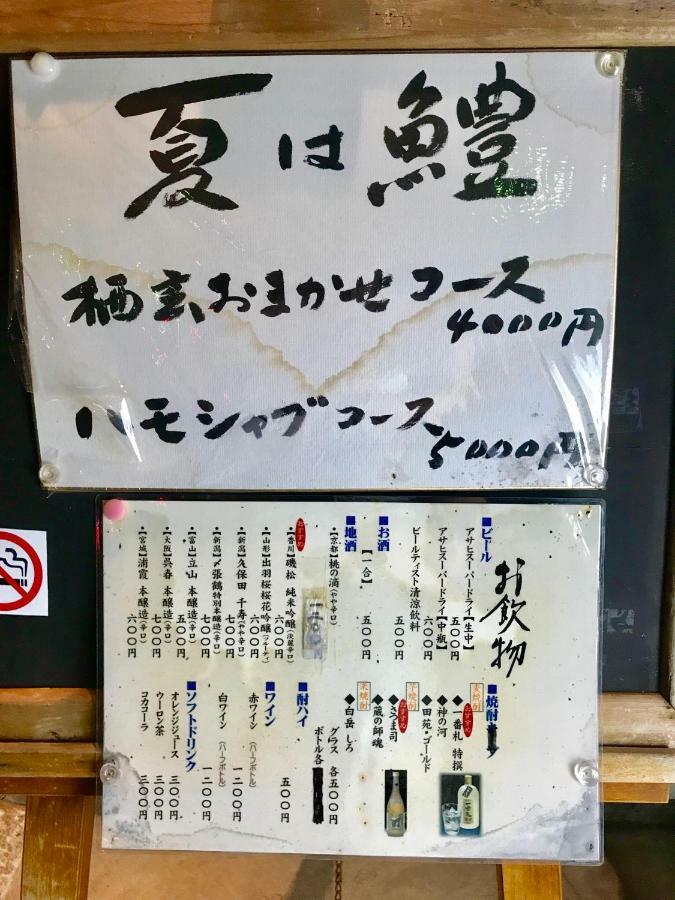 夏は鱧
栖玄、おまかせコース
4000円
ハモシャブコース、
5000円
お飲物
■ビール
アサヒスーパードライ【生中】
五〇〇円
アサヒスーパードライ【中瓶】
六〇〇円
ビールテイスト清涼飲料
五〇〇円
■お酒
【一合】
五〇〇円
■地酒
・【京都】桃の滴（やや辛口）
おすすめ
・【香川】磯松 純米吟醸（淡麗辛口）
六〇〇円
・【山形】出羽桜桜花吟醸（フルーティ）
六〇〇円
・【新潟】久保田 千寿（やや辛口）
七〇〇円
・【新潟】〆張鶴特別本醸造（辛口）
七〇〇円
・【富山】立山 本醸造（辛口）
五〇〇円
・【大阪】呉春 本醸造（辛口）
七〇〇円
・【宮城】浦霞 本醸造（辛口）
六〇〇円
■焼酎
麦焼酎
◆一番札 特撰
おすすめ
◆神の河
◆田苑・ゴールド
芋焼酎
◆さつま司
おすすめ
◆蔵の師魂
米焼酎
◆白岳 しろ
グラス 各五〇〇円
ボトル各
円
■酎ハイ
五〇〇円
■ワイン
赤ワイン（ハーフボトル）
一二〇〇円
白ワイン（ハーフボトル）
一二〇〇円
■ソフトドリンク
オレンジジュース
三〇〇円
ウーロン茶
三〇〇円
コカコーラ
三〇〇円